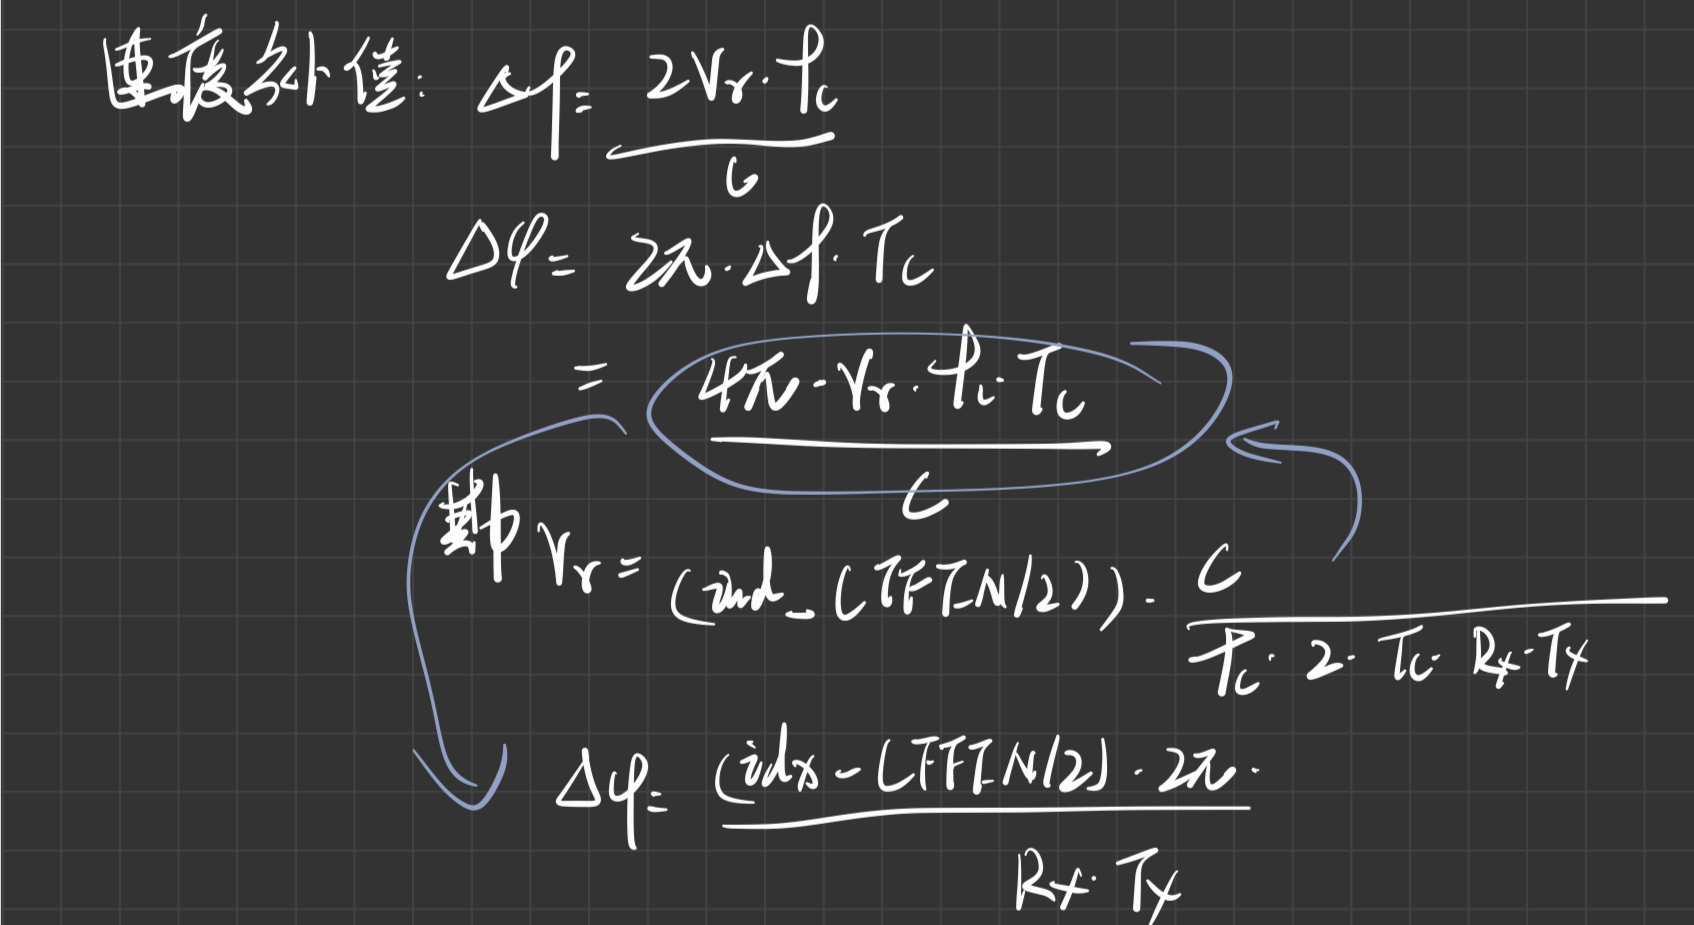 速度补偿: Δf = 2Vr·fc / C
Δφ = 2π·Δf·Tc
= 4π·Vr·fc·Tc / C
其中 Vr = (ind - (FFT_N/2)) · C / fc·2·Tc·Rx·Tx
Δφ = (idx - (FFT_N/2)·2π· / Rx·Tx